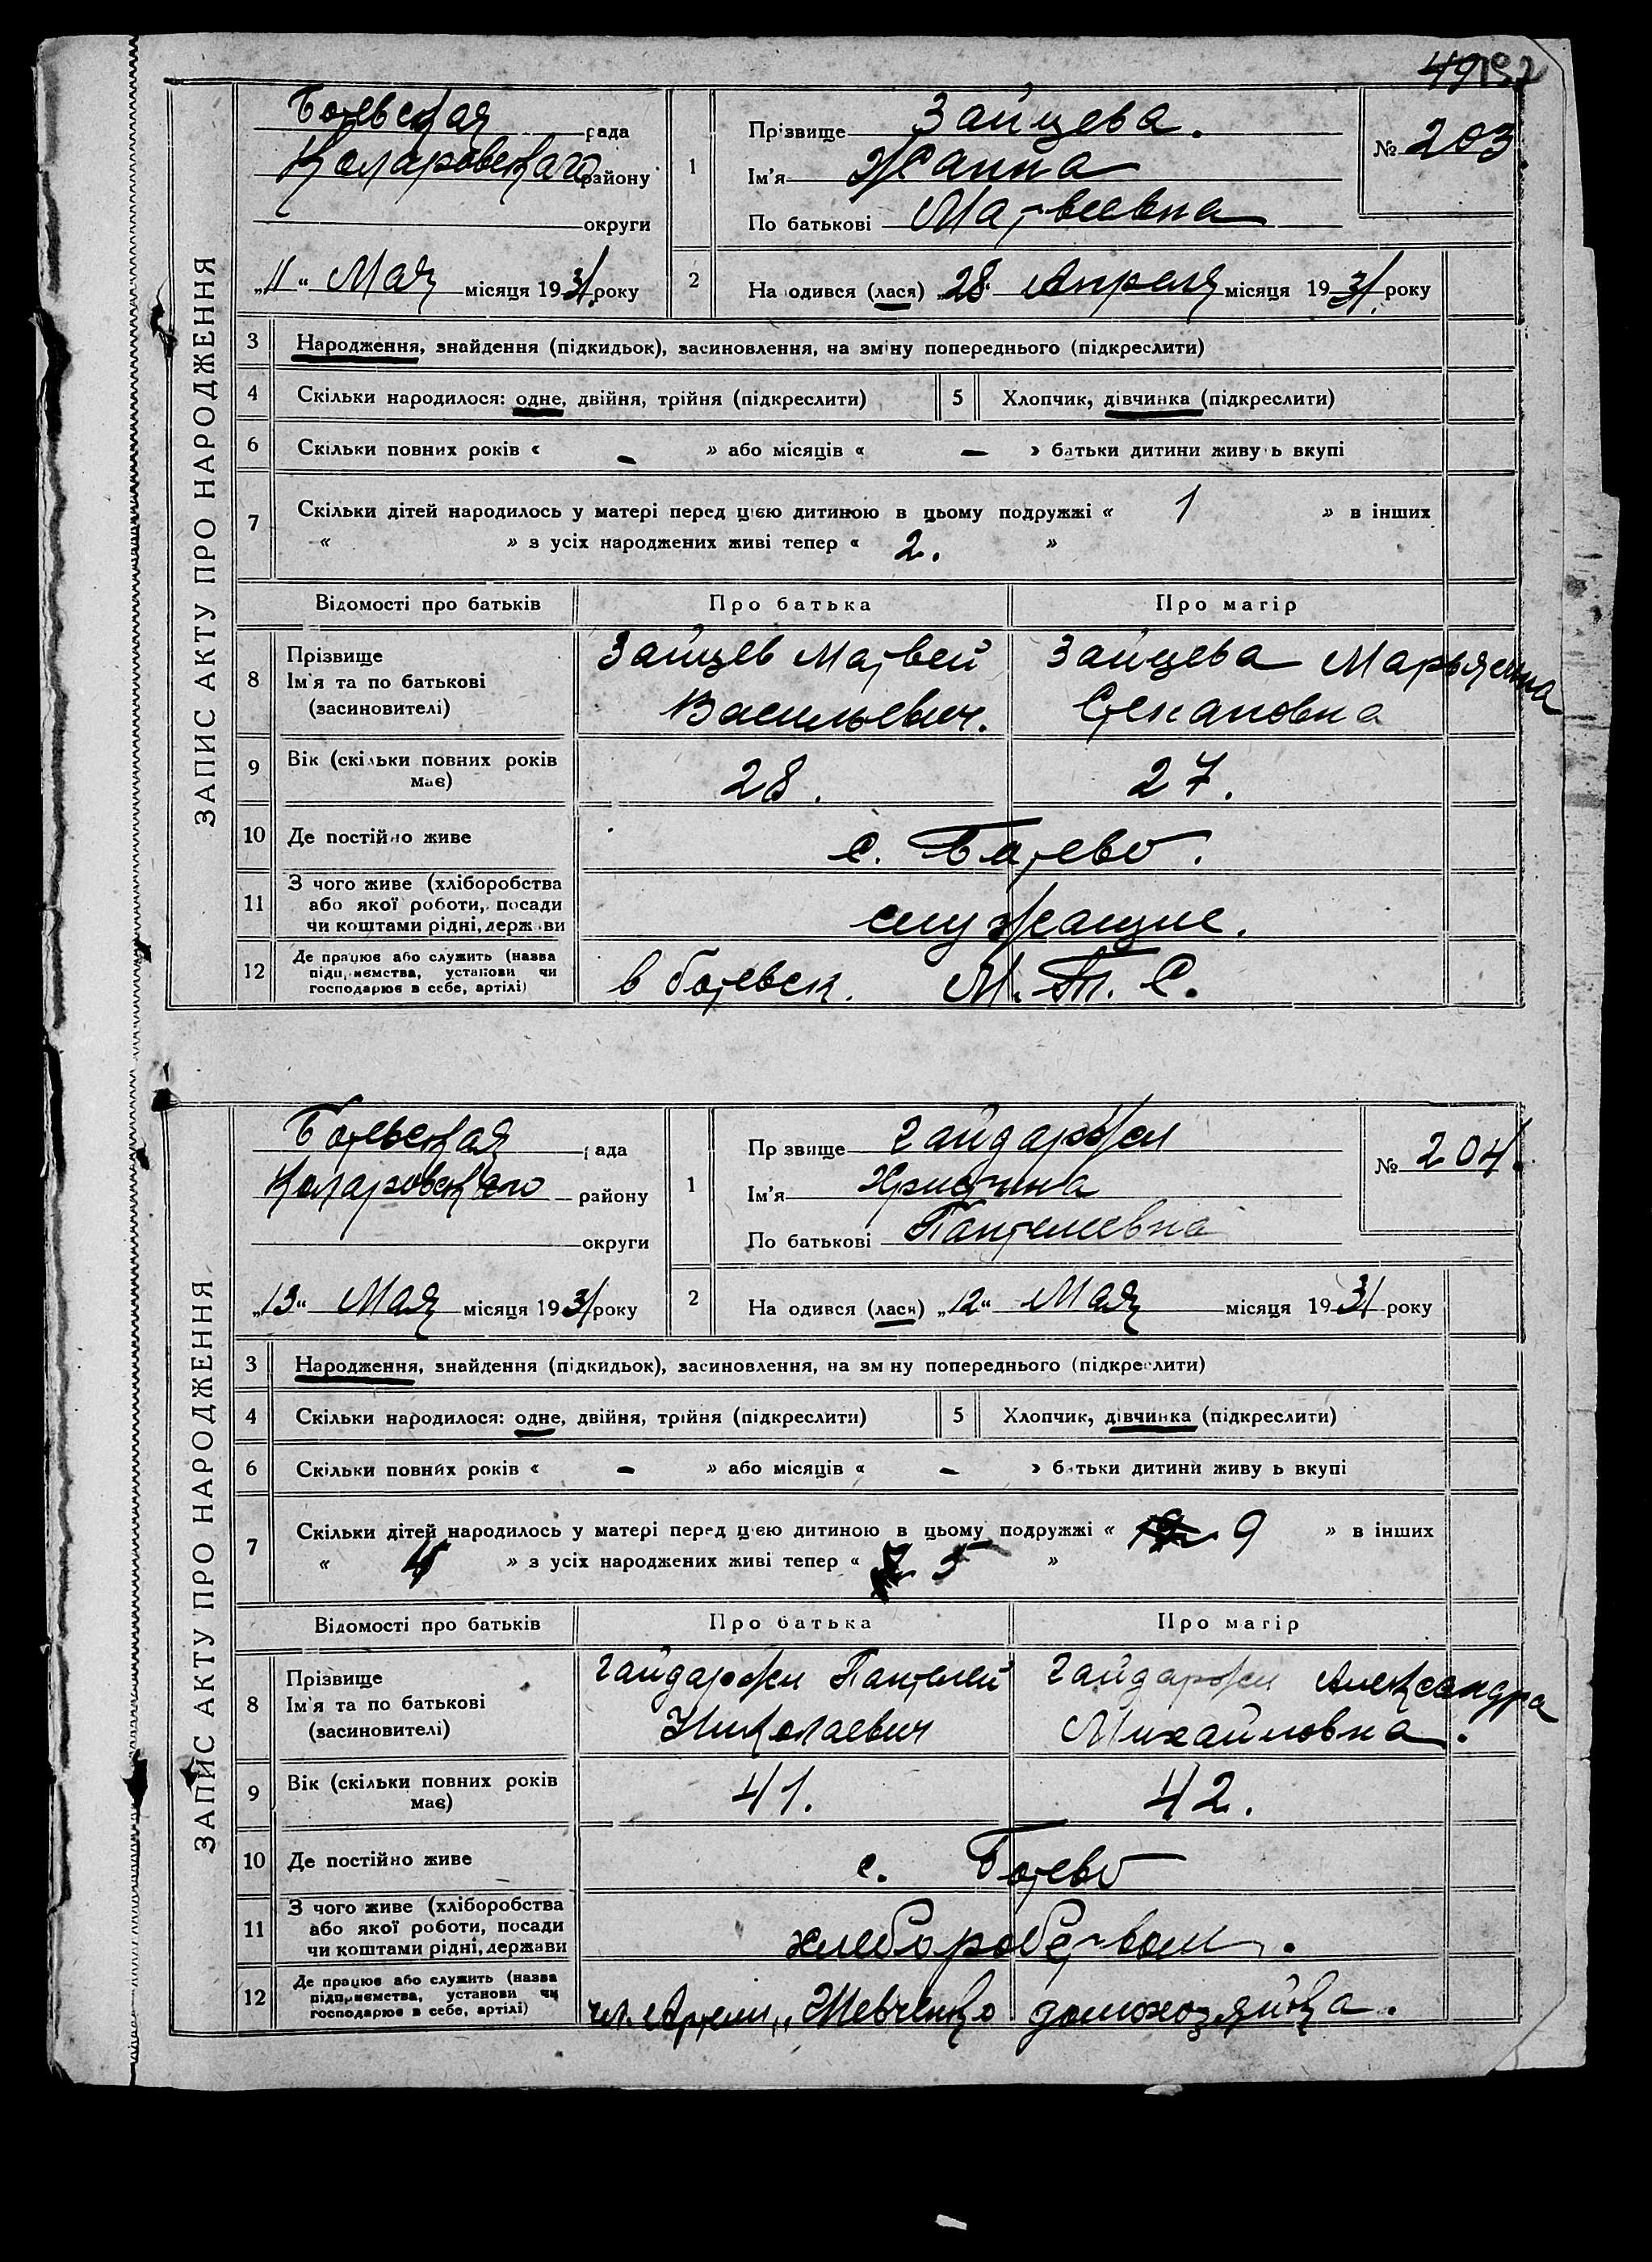 49 192
ЗАПИС АКТУ ПРО НАРОДЖЕННЯ
Ботевская рада
Коларовского району
округи
„11“ Мая місяця 1931 року
1
Прізвище Зайцева.
Ім'я Жанна
По батькові Матвеевна
№ 203.
2 На одився (лася) „28“ Апреля місяця 1931 року
3 Народження, знайдення (підкидьок), засиновлення, на зміну попереднього (підкреслити)
4 Скільки народилося: одне, двійня, трійня (підкреслити) 5 Хлопчик, дівчинка (підкреслити)
6 Скільки повних років « – » або місяців « – » батьки дитини живу ь вкупі
7 Скільки дітей народилось у матері перед цією дитиною в цьому подружжі « 1 » в інших
« » з усіх народжених живі тепер « 2. »
Відомості про батьків Про батька Про матір
8 Прізвище
Ім'я та по батькові
(засиновителі)
Зайцев Матвей
Васильевич.
Зайцева Марья
Степановна
9 Вік (скільки повних років має) 28. 27.
10 Де постійно живе с. Ботево.
11 З чого живе (хліборобства
або якої роботи, посади
чи коштами рідні, держ ви
служащие.
12 Де працює або служить (назва
підприємства, установи чи
господарює в себе, артілі)
в Ботевск. М.Т.С.
ЗАПИС АКТУ ПРО НАРОДЖЕННЯ
Ботевская рада
Коларовского району
округи
„13“ Мая місяця 1931 року
1
Пр звище Гайдаржи
Ім'я Христина
По батькові Пантелеевна
№ 204.
2 На одився (лася) „12“ Мая місяця 1931 року
3 Народження, знайдення (підкидьок), засиновлення, на зм ну попереднього (підкреслити)
4 Скільки народилося: одне, двійня, трійня (підкреслити) 5 Хлопчик, дівчинка (підкреслити)
6 Скільки повних років « – » або місяців « – » б тьки дитини живу ь вкупі
7 Скільки дітей народилось у матері перед цією дитиною в цьому подружжі « 9 » в інших
« » з усіх народжених живі тепер « 5 »
Відомості про батьків Про батька Про матір
8 Прізвище
Ім'я та по батькові
(засиновителі)
Гайдаржи Пантелей
Николаевич
Гайдаржи Александра
Михайловна.
9 Вік (скільки повних років має) 41. 42.
10 Де постійно живе с. Ботево
11 З чого живе (хліборобства
або якої роботи, посади
чи коштами рідні, держави
хлеборобством.
12 Де працює або служить (назва
підприємства, установи чи
господарює в себе, артілі)
чл. Артели „Шевченко домохозяйка.